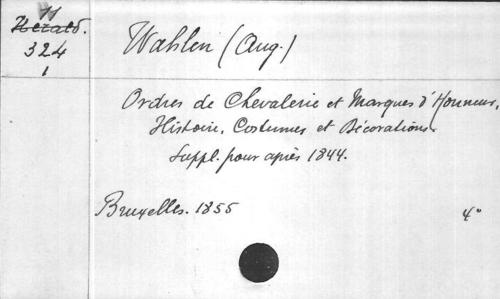 H
Herald.
324
1
Wahlen (Aug.)
Ordres de Chevalerie et Marques d'Honneur,
Histoire, Costumes et Décorations.
Suppl. pour après 1844.
Bruxelles. 1855
4°